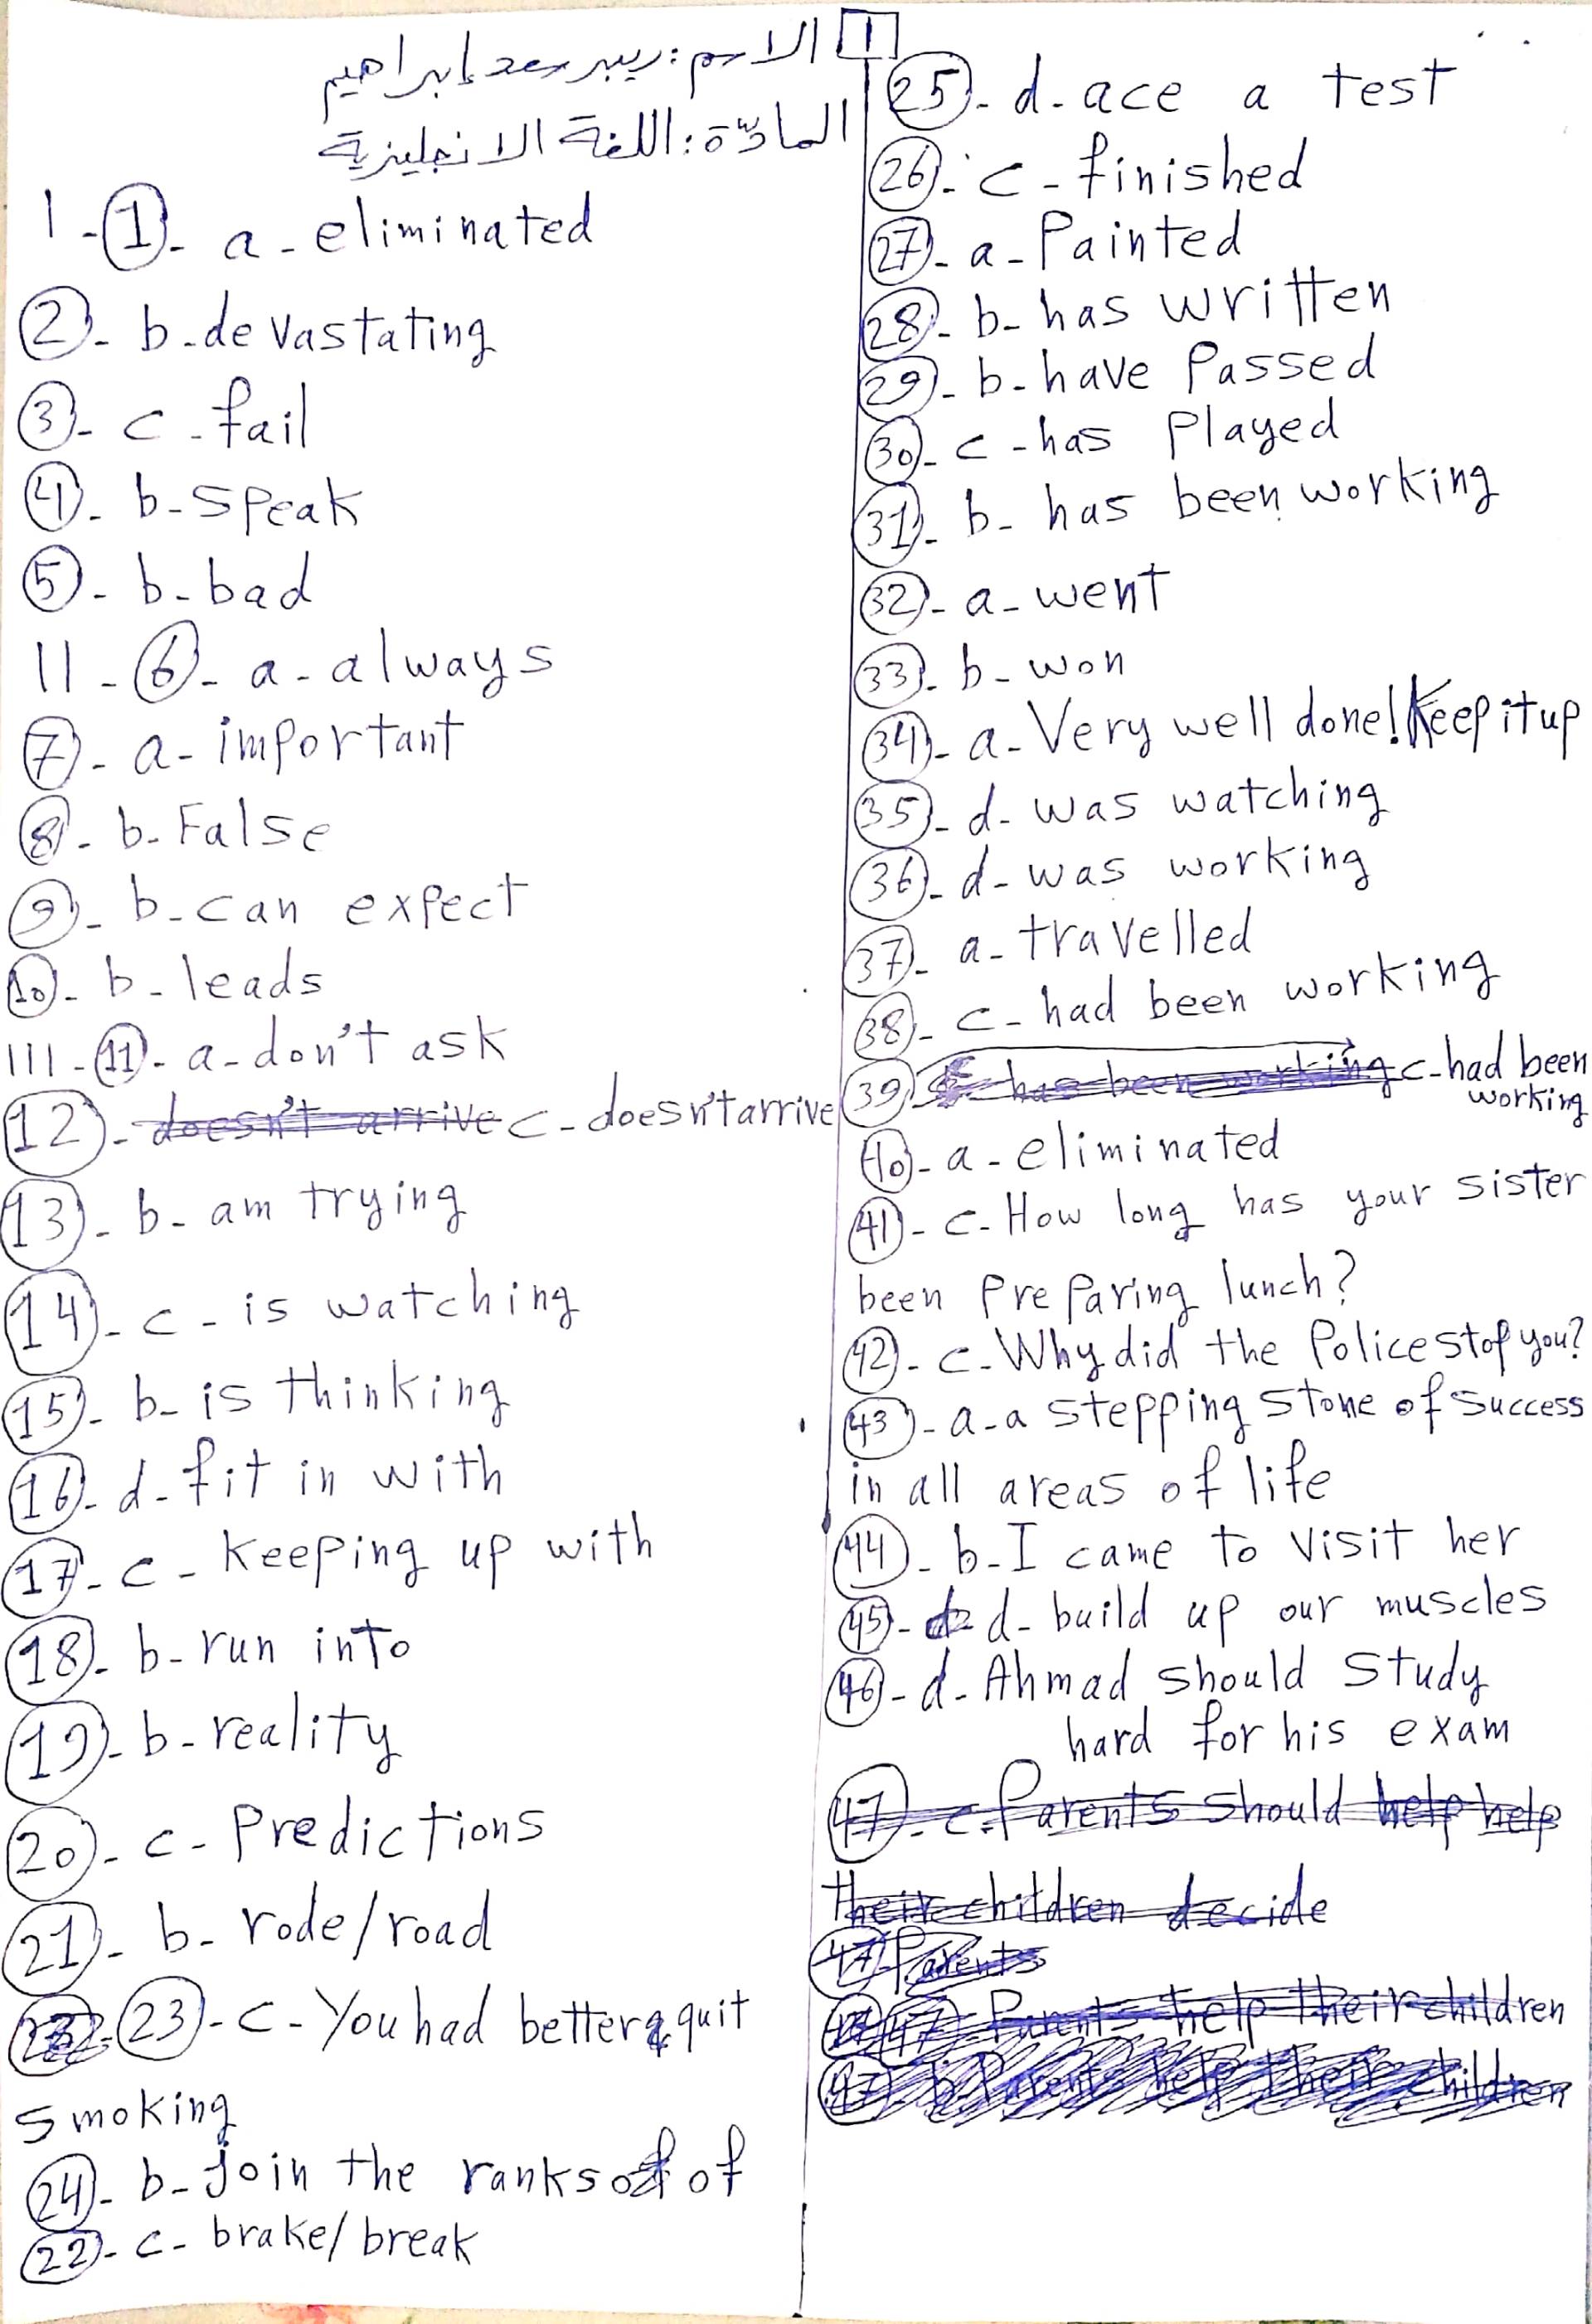 1
الاسم: بيبرسعد إبراهيم
المادّة: اللغة الانجليزية
I-1- a- eliminated
2- b- devastating
3- c- fail
4- b- speak
5- b- bad
II-6- a- always
7- a- important
8- b- False
9- b- can expect
10- b- leads
III-11- a- don't ask
12- doesn't arrive c- doesn't arrive
13- b- am trying
14- c- is watching
15- b- is thinking
16- d- fit in with
17- c- keeping up with
18- b- run into
19- b- reality
20- c- Predictions
21- b- rode/road
23- c- You had better quit
smoking
24- b- join the ranks of
22- c- brake/break
25- d- ace a test
26- c- finished
27- a- Painted
28- b- has written
29- b- have Passed
30- c- has Played
31- b- has been working
32- a- went
33- b- won
34- a- Very well done! Keep it up
35- d- was watching
36- d- was working
37- a- travelled
38- c- had been working
39- has been working c- had been
working
40- a- eliminated
41- c- How long has your sister
been preparing lunch?
42- c- Why did the Police stop you?
43- a- a stepping stone of success
in all areas of life
44- b- I came to visit her
45- d- build up our muscles
46- d- Ahmad should study
hard for his exam
47- c- Parents should help help
their children decide
47 Parents
47- Parents help their children
47- b- Parents help their children